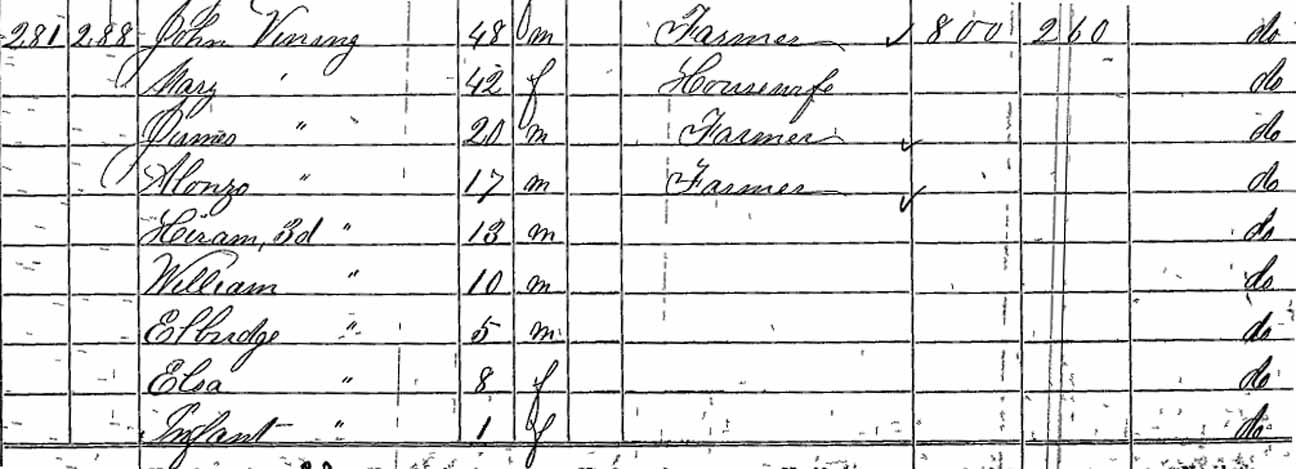 281 288 John Vining 48 m Farmer ✓ 800 260 do
Mary " 42 f Housewife do
James " 20 m Farmer ✓ do
Alonzo " 17 m Farmer ✓ do
Hiram, 3d " 13 m do
William " 10 m do
Elbridge " 5 m do
Elsa " 8 f do
Infant " 1 f do